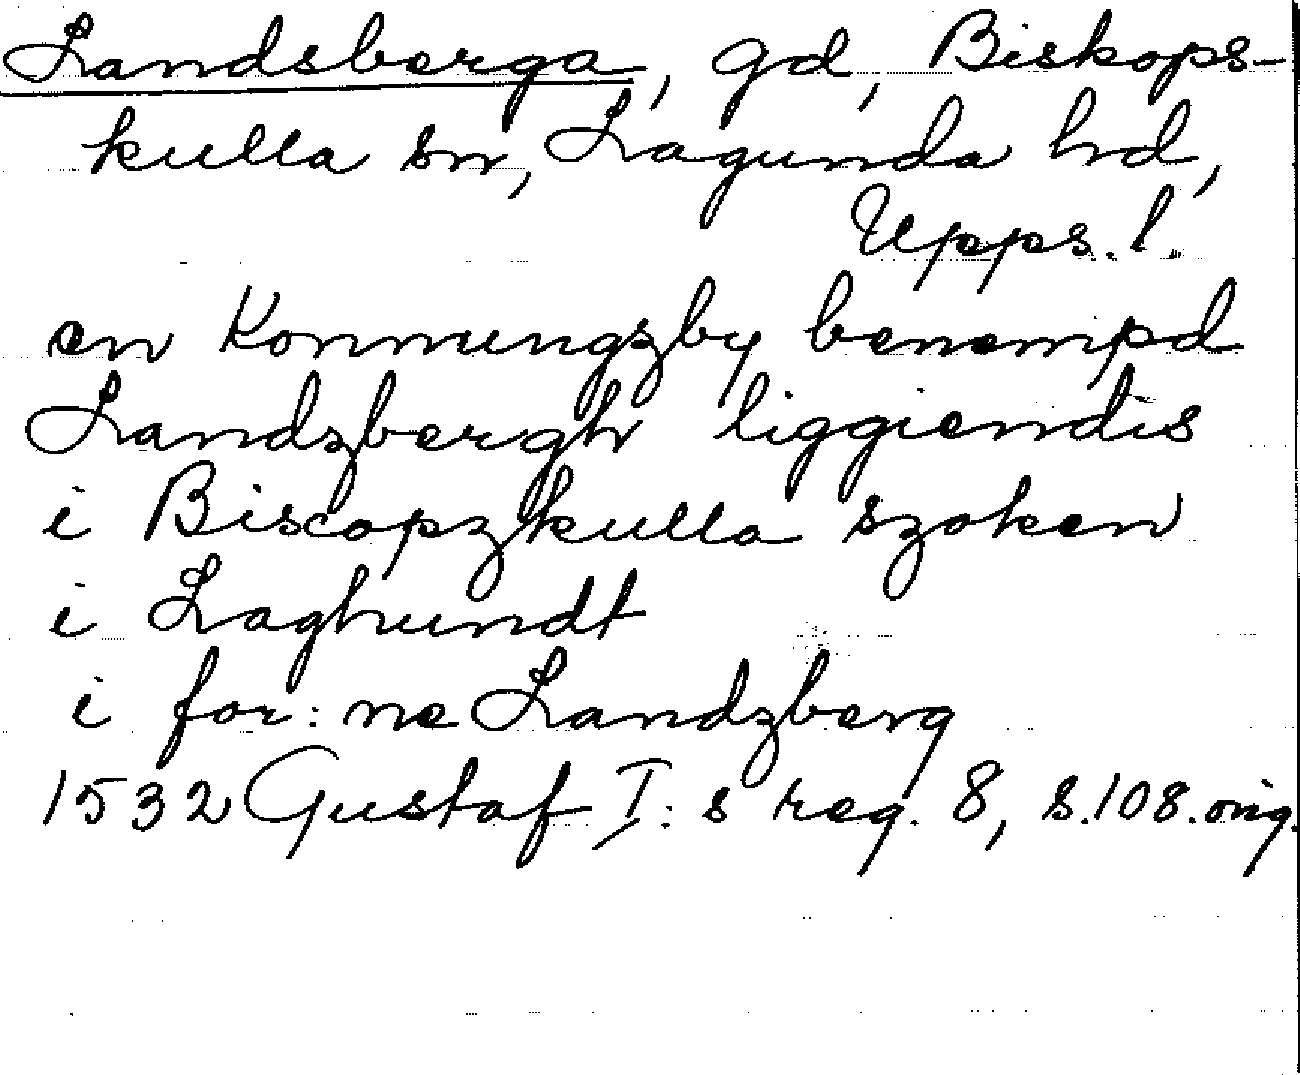 Landsberga, gd, Biskops-
kulla sn, Lagunda hd,
Upps. l.
en Konnungzby benempd
Landzbergh liggiendis
i Biscopzkulla szoken
i Laghundt
i for: ne Landzberg
1532 Gustaf I: s reg. 8, s. 108. orig.